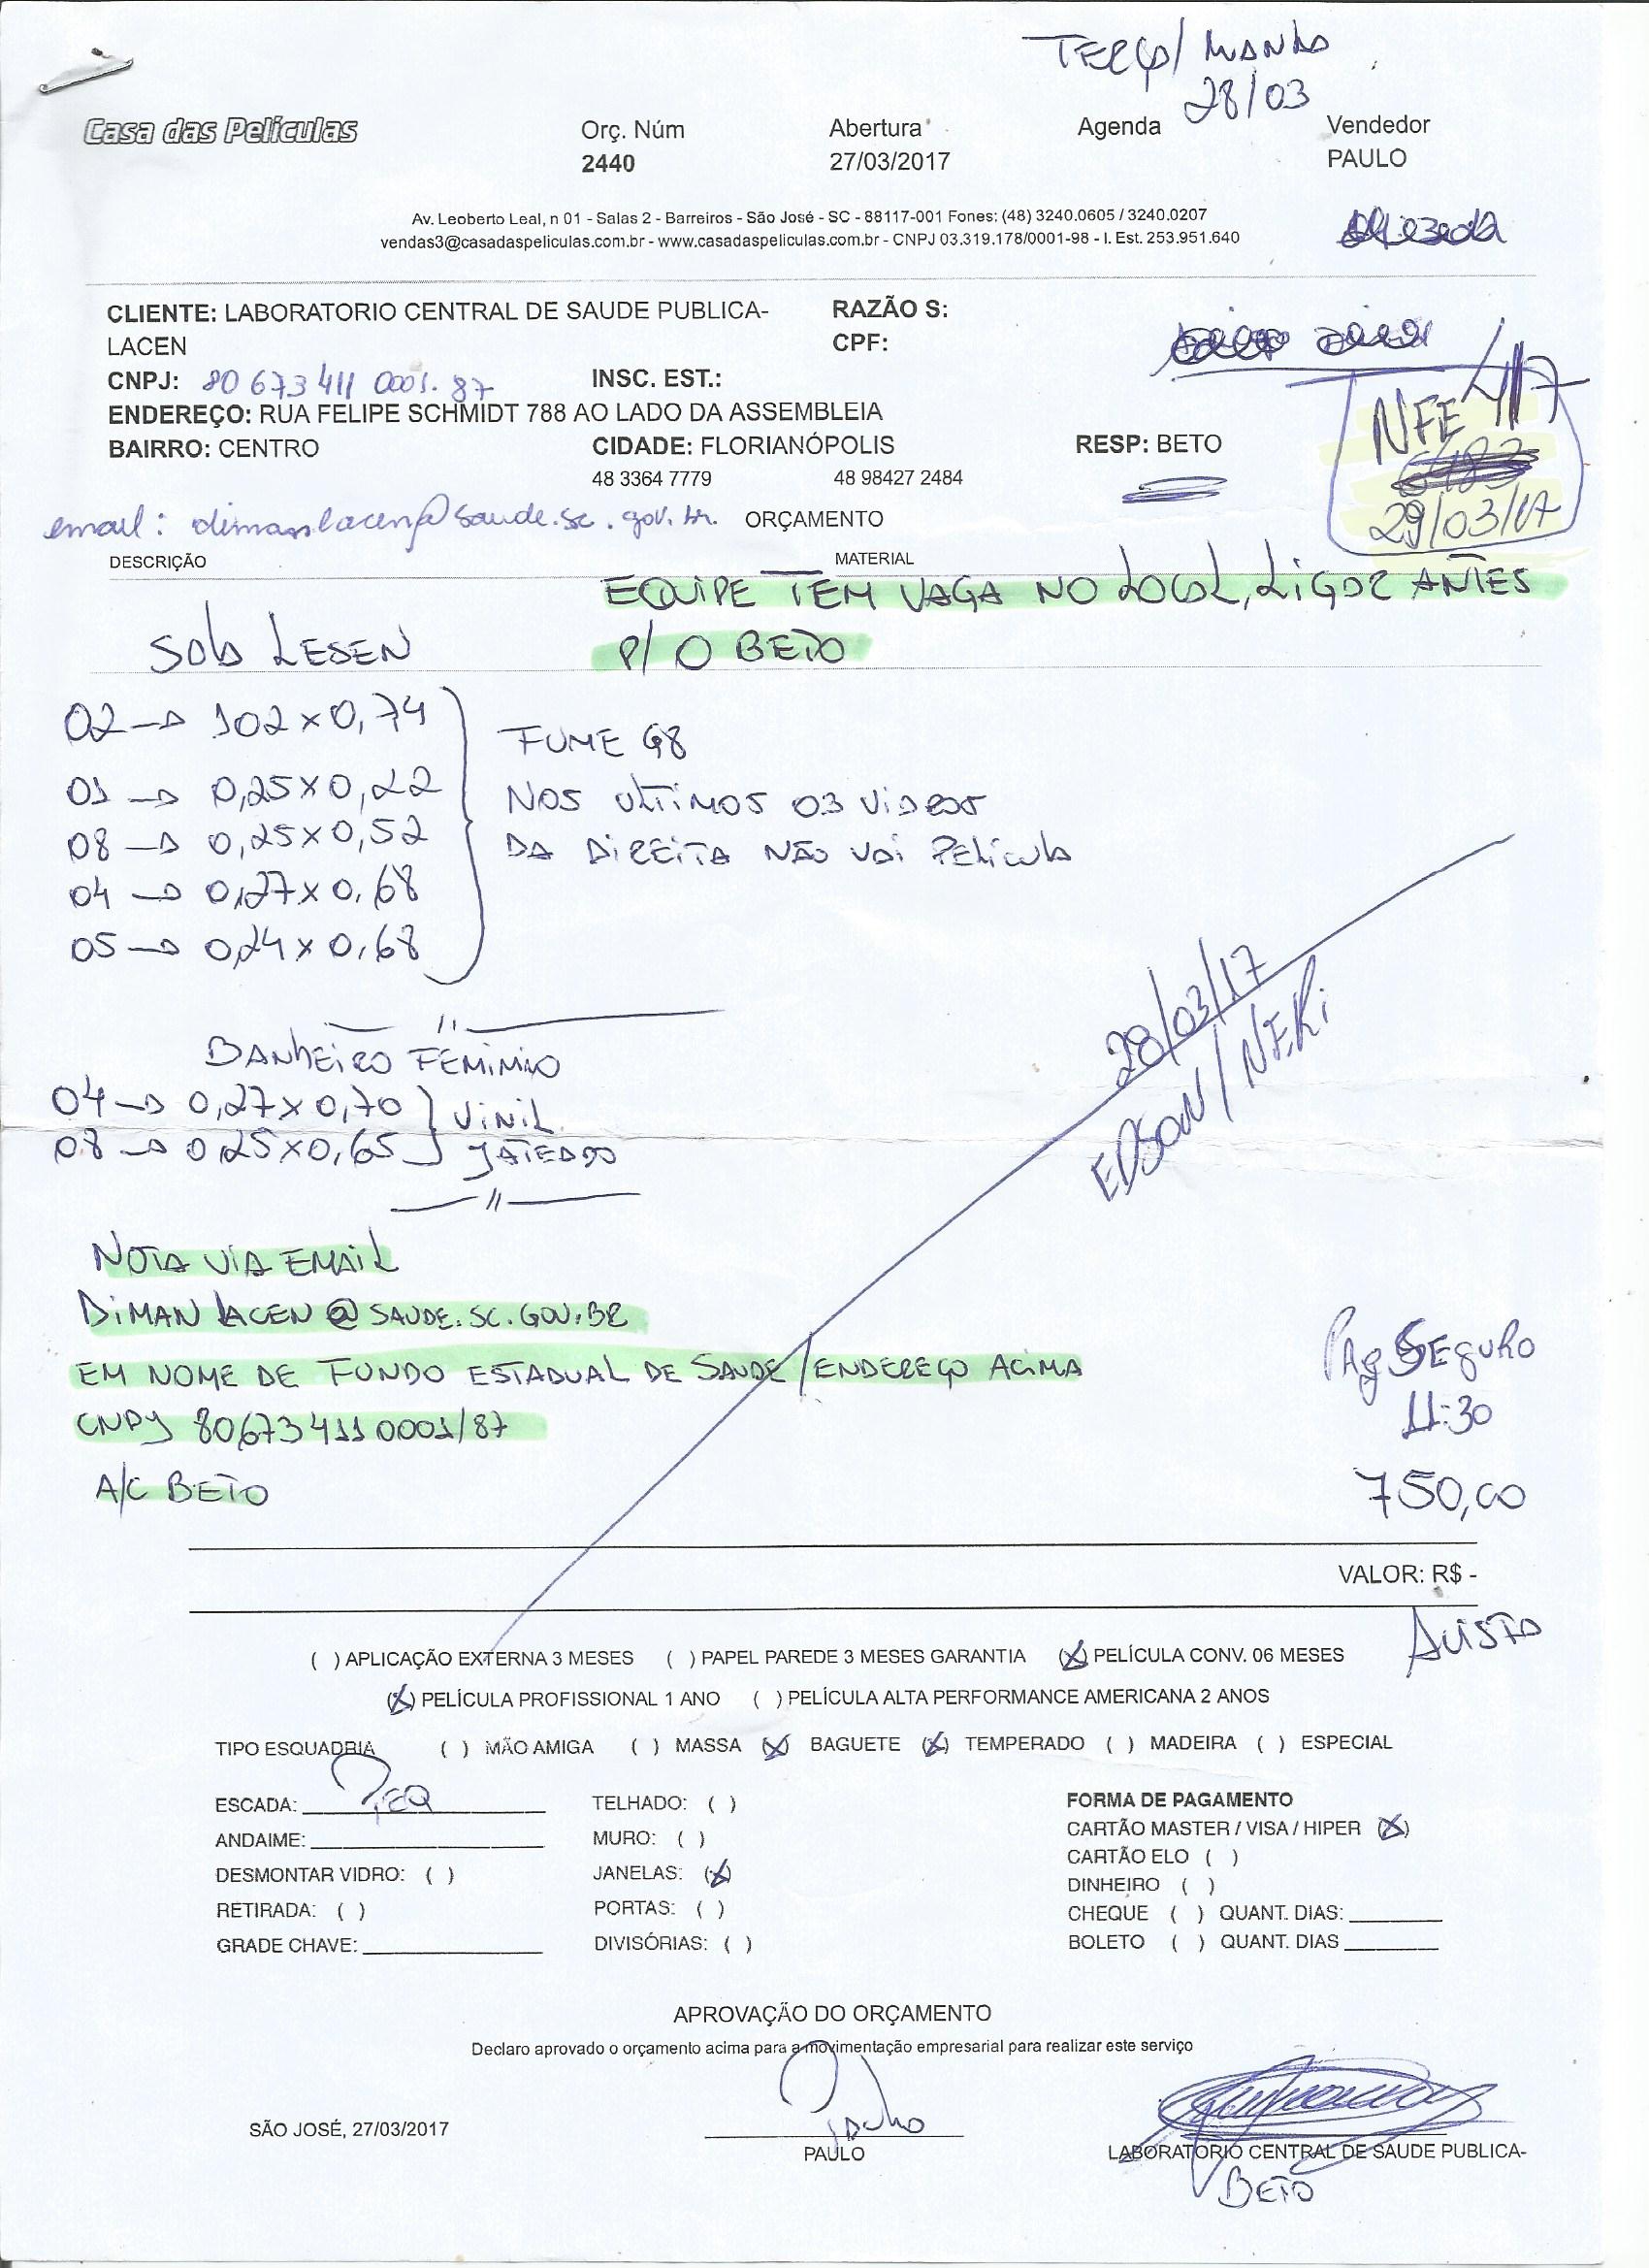 TERÇA/ MANHÃ
28/03
Casa das Películas
Orç. Núm
2440
Abertura
27/03/2017
Agenda
Vendedor
PAULO
Av. Leoberto Leal, n 01 - Salas 2 - Barreiros - São José - SC - 88117-001 Fones: (48) 3240.0605 / 3240.0207
vendas3@casadaspeliculas.com.br - www.casadaspeliculas.com.br - CNPJ 03.319.178/0001-98 - I. Est. 253.951.640
CLIENTE: LABORATORIO CENTRAL DE SAUDE PUBLICA-
LACEN
RAZÃO S:
CPF:
CNPJ: 80 673 411 0001. 87
INSC. EST.:
ENDEREÇO: RUA FELIPE SCHMIDT 788 AO LADO DA ASSEMBLEIA
BAIRRO: CENTRO
CIDADE: FLORIANÓPOLIS
RESP: BETO
48 3364 7779
48 98427 2484
NFE
29/03/17
email: dimanlacen@saude.sc.gov.br.
ORÇAMENTO
DESCRIÇÃO
MATERIAL
EQUIPE TEM VAGA NO LOCAL, LIGAR ANTES
P/ O BETO
02 → 102 x 0,74
01 → 0,25 x 0,22
08 → 0,25 x 0,52
04 → 0,27 x 0,68
05 → 0,24 x 0,68
FUME G8
NOS ULTIMOS 03 VIDROS
DA DIREITA NÃO VAI PELÍCULA
28/03/17
EDSON/NERI
BANHEIRO FEMIMIO
04 → 0,27 x 0,70
08 → 0,25 x 0,65
VINIL
JATEADO
NOTA VIA EMAIL
DIMAN LACEN @ SAUDE.SC.GOV.BR
EM NOME DE FUNDO ESTADUAL DE SAUDE / ENDEREÇO ACIMA
CNPJ 80673411 0001/87
A/C BETO
PAg SEguRO
11:30
750,00
VALOR: R$ -
AVISTA
( ) APLICAÇÃO EXTERNA 3 MESES ( ) PAPEL PAREDE 3 MESES GARANTIA (X) PELÍCULA CONV. 06 MESES
(X) PELÍCULA PROFISSIONAL 1 ANO ( ) PELÍCULA ALTA PERFORMANCE AMERICANA 2 ANOS
TIPO ESQUADRIA ( ) MÃO AMIGA ( ) MASSA (X) BAGUETE (X) TEMPERADO ( ) MADEIRA ( ) ESPECIAL
ESCADA: PEQ
ANDAIME:
DESMONTAR VIDRO: ( )
RETIRADA: ( )
GRADE CHAVE:
TELHADO: ( )
MURO: ( )
JANELAS: (X)
PORTAS: ( )
DIVISÓRIAS: ( )
FORMA DE PAGAMENTO
CARTÃO MASTER / VISA / HIPER (X)
CARTÃO ELO ( )
DINHEIRO ( )
CHEQUE ( ) QUANT. DIAS:
BOLETO ( ) QUANT. DIAS
APROVAÇÃO DO ORÇAMENTO
Declaro aprovado o orçamento acima para a movimentação empresarial para realizar este serviço
SÃO JOSÉ, 27/03/2017
PAULO
LABORATORIO CENTRAL DE SAUDE PUBLICA-
BETO